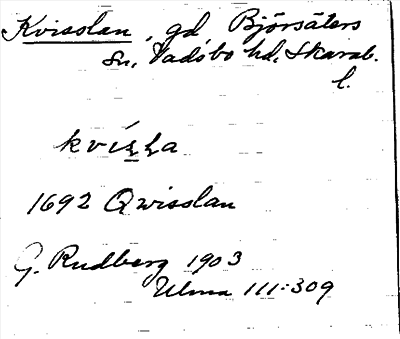 Kvisslan, gd Björsäters
sn, Vadsbo hd, Skarab.
l.
1692 Qwisslan
G. Rudberg 1903
Ulma 111:309